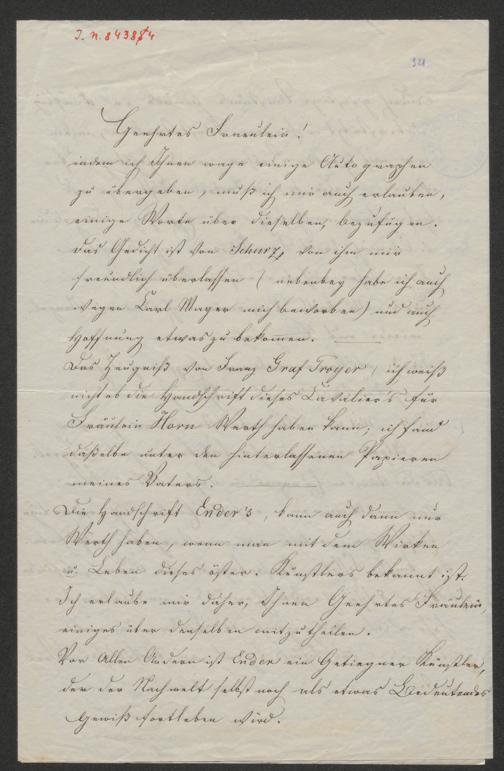 I. N. 84384
321
Geehrtes Fraeulein!
indem ich Ihnen wage einige Autographen
zu übergeben, muß ich mir auch erlauben,
einige Worte über dieselben, bezufügen.
Das Gedicht ist von Schurz, von ihm mir
freundlich überlassen (nebenbey habe ich auch
wegen Carl Mayer mich beworben) und auch
Hoffnung etwas zu bekommen.
Das Zeugniß von Franz Graf Troyer, ich weiß
nicht ob die Handschrift dieses Cavalier's für
Fräulein Horn Werth haben kann; ich fand
daßelbe unter den hinterlassenen Papieren
meines Vaters.
Die Handschrift Ender's, kann auch dann nur
Werth haben, wenn man mit dem Wirken
u. Leben dieses öster. Künstlers bekannt ist.
Ich erlaube mir daher, Ihnen Geehrtes Fräulein,
einiges über denselben mitzutheilen.
Vor Allen Andern ist Ender ein Getiegner Künstler,
der der Nachwelt selbst noch als etwas Bedeutendes
gewiß fortleben wird.